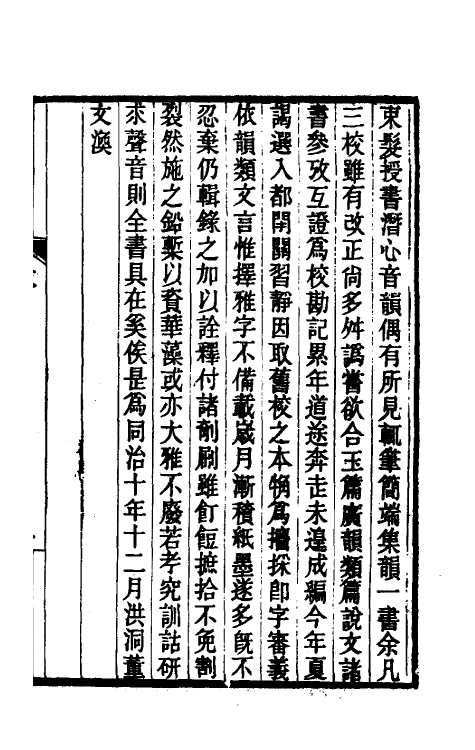 束髮授書潛心音韻偶有所見輒筆簡端集韻一書余凡
三校雖有改正尙多舛譌嘗欲合玉篇廣韻類篇說文諸
書參攷互證爲校勘記累年道途奔走未遑成編今年夏
謁選入都閉關習靜因取舊校之本稍爲攟採卽字審義
依韻類文言惟擇雅字不備載歲月漸積紙墨遂多旣不
忍棄仍輯錄之加以詮釋付諸剞劂雖飣餖摭拾不免割
裂然施之鉛槧以資華藻或亦大雅不廢若考究訓詁研
求聲音則全書具在奚俟是爲同治十年十二月洪洞董
文渙